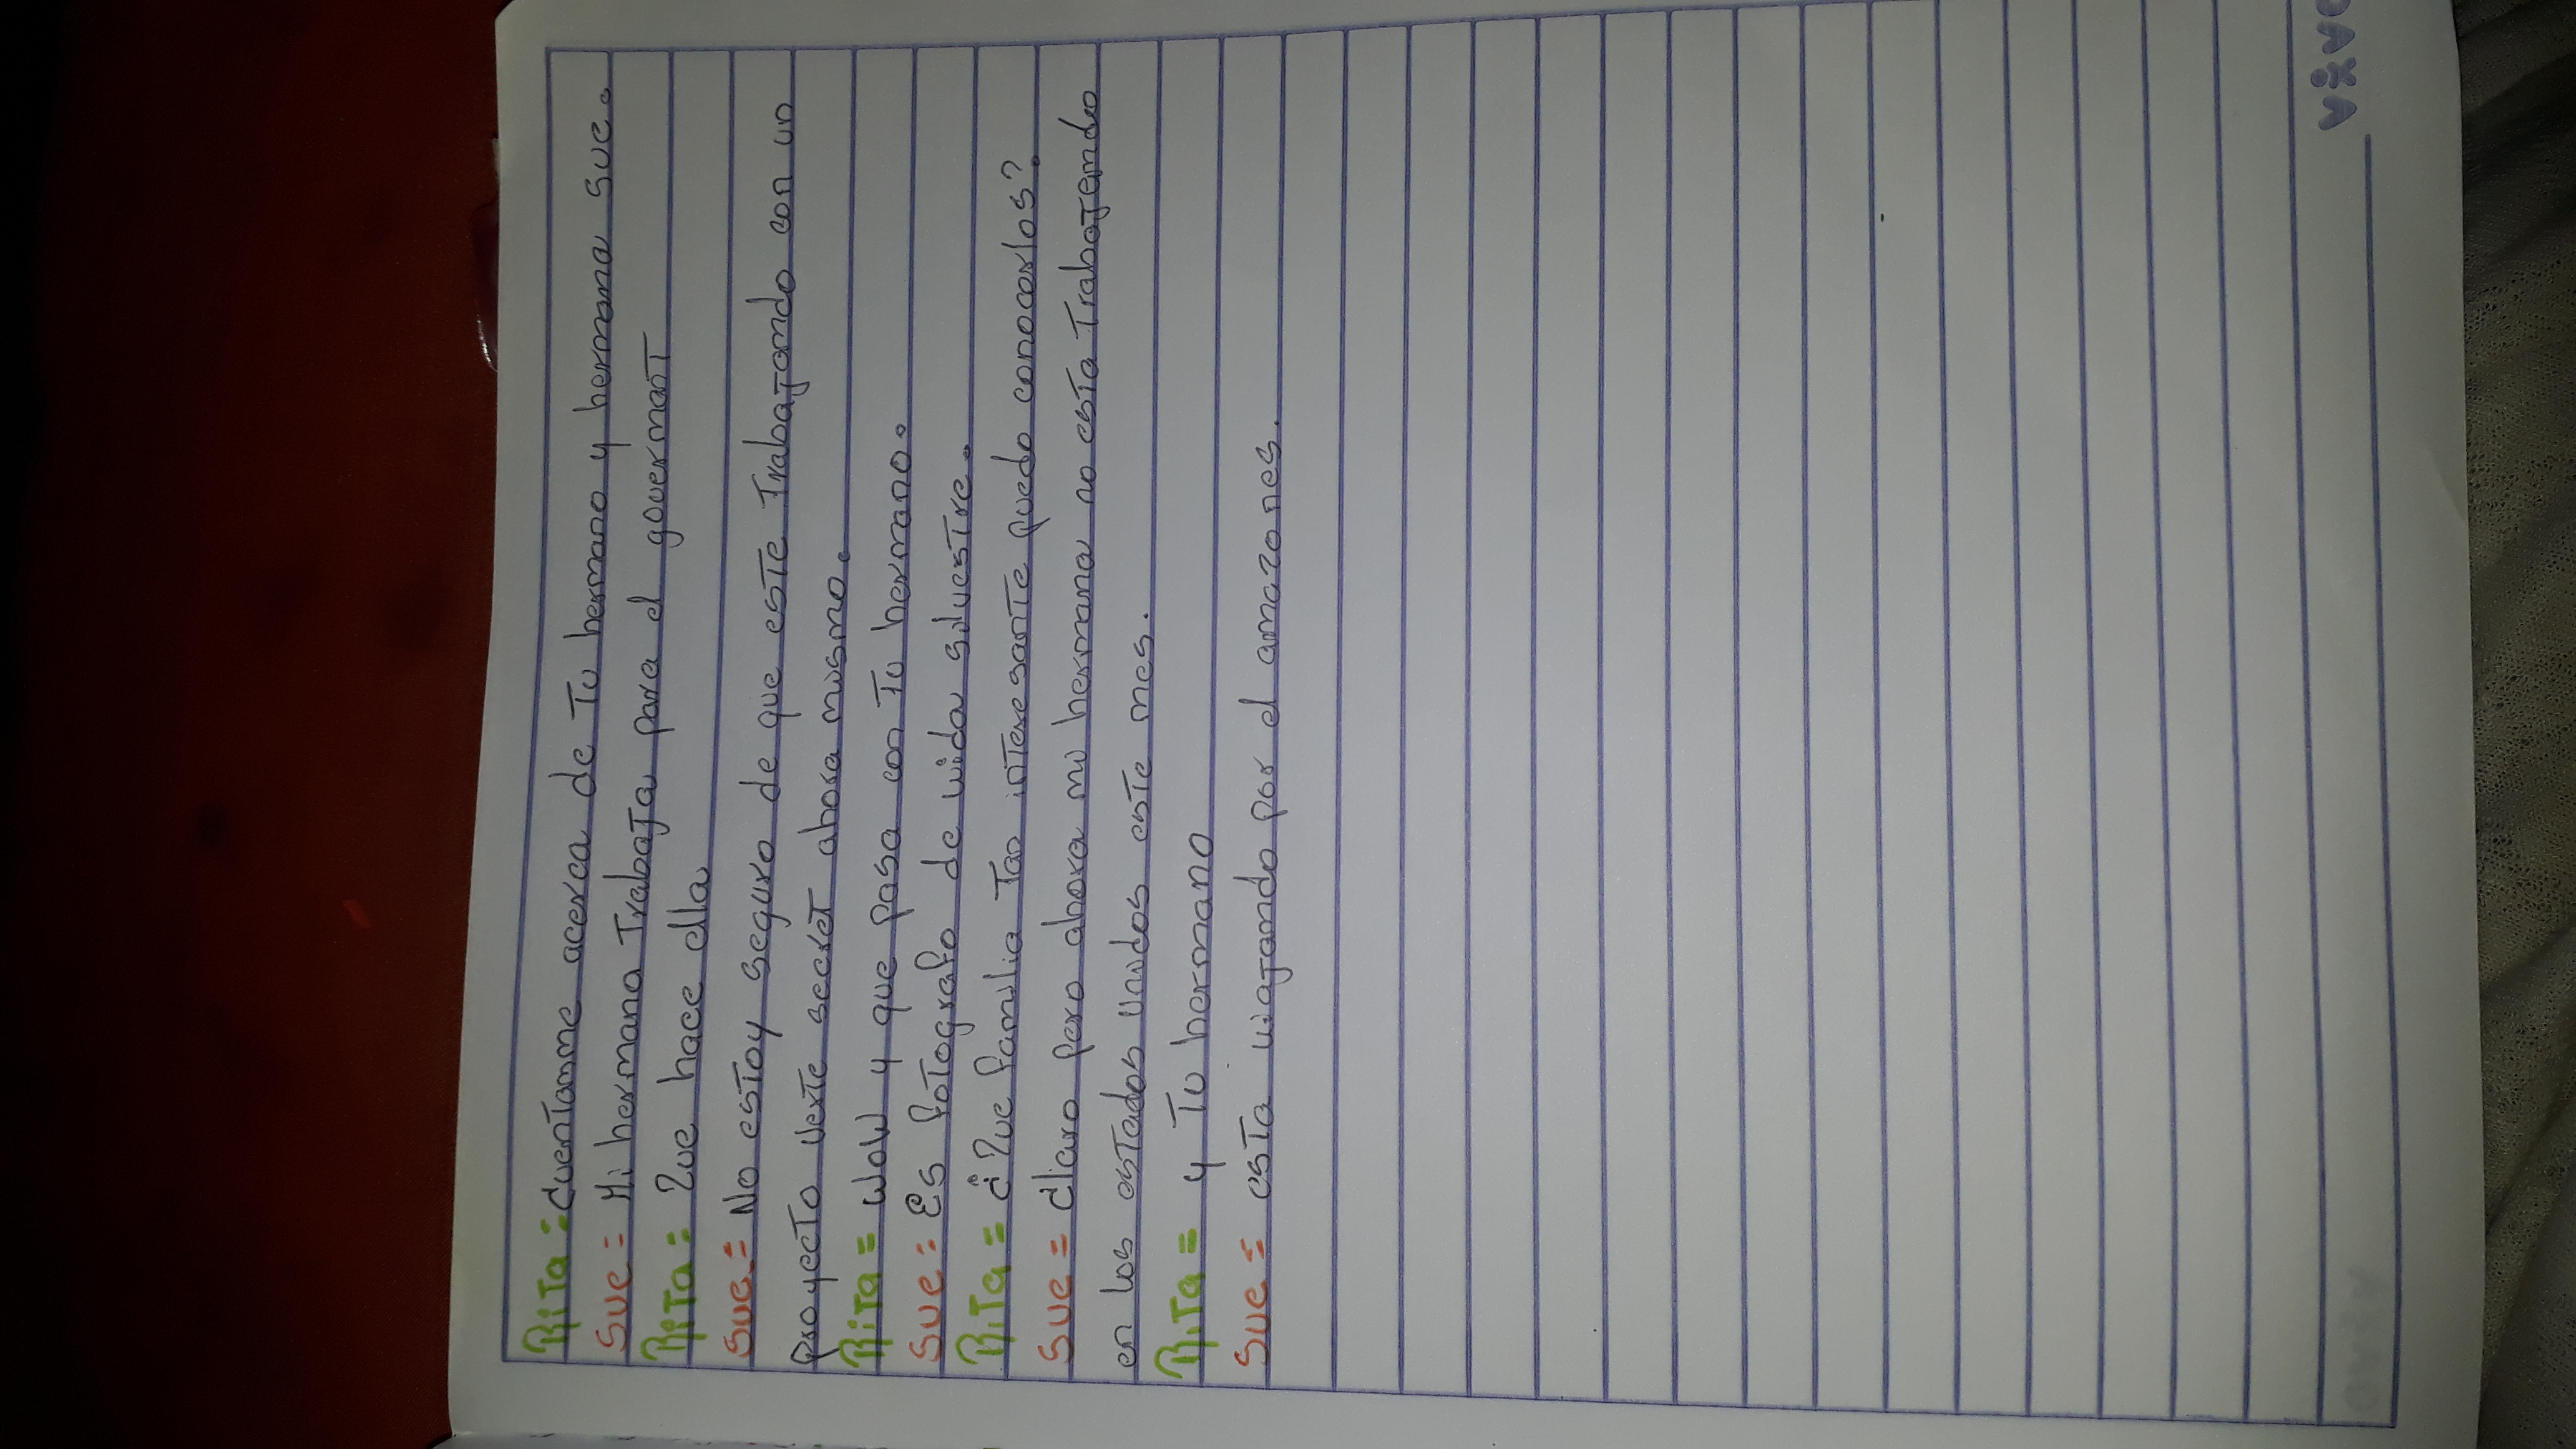 Rita: cuentamme acerca de Tu hermano y hermana sue.
Sue: Mi hermana Trabaja para el governant
Rita: Que hace ella
Sue: No estoy seguro de que este Trabajando con un
proyecto verte secret ahora mismo.
Rita = WOW y que pasa con Tu hermano.
Sue: Es fotografo de vida silvestre.
Rita = ¿Que familia Tan interesante puedo conocerlos?
Sue = claro pero ahora mi hermana no esta Trabajando
en los estados unidos este mes.
Rita = y Tu hermano
Sue = esta viajando por el amazones.